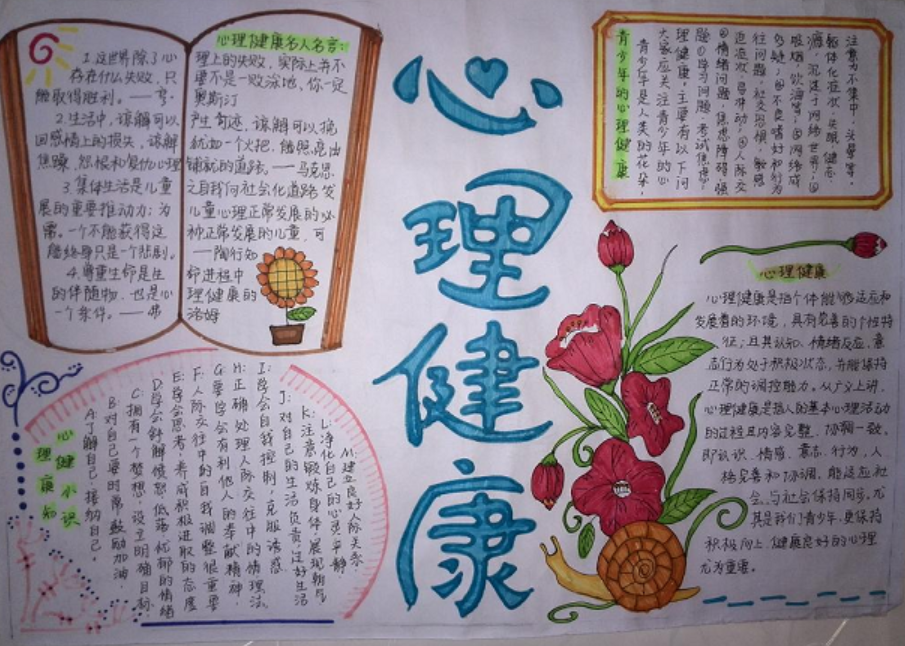 心理健康
心理健康名人名言:
1.这世界除了心
理上的失败,实际上并不
存在什么失败,只
要不是一败涂地、你一定
能取得胜利。——亨·
奥斯汀
2.生活中,谅解可以
产生奇迹,谅解可以挽
回感情上的损失,谅解
犹如一个火把,能照亮由
焦躁、怨恨和复仇心理
铺就的道路。——马克思
3.集体生活是儿童
之自我向社会化道路发
展的重要推动力;为
儿童心理正常发展的必
需。一个不能获得这
种正常发展的儿童,可
能终身只是一个悲剧。
——陶行知
4.尊重生命是生
命进程中
的伴随物,也是心
理健康的
一个条件。——弗
洛姆
青少年的心理健康
青少年是人类的花朵,
大家应关注青少年的心
理健康,主要有以下问
题①学习问题:考试焦虑,
注意力不集中,头晕等,
心理健康
心理健康是指个体能够适应和
发展着的环境,具有完善的个性特
征;且其认知、情绪反应、意
志行为处于积极状态,并能保持
正常的调控能力。从广义上讲,
心理健康是指人的基本心理活动
的过程且内容完整、协调一致,
即认识、情感、意志、行为、人
格完善和协调,能适应社
会,与社会保持同步。尤
其是我们青少年,更保持
积极向上、健康良好的心理
尤为重要。
心健小识
理康知
A:了解自己,接纳自己
B:对自己要时常鼓励加油
C:拥有一个梦想,设立明确目标
D:学会舒解愤怒低落忧郁的情绪
E:学会思考,养成积极进取的态度
F:人际交往中的自我调整很重要
G:要学会有利他人的奉献精神
H:正确处理人际交往中的情理法
I:学会自我控制,克服诱惑
J:对自己的生活负责,过好生活
K:注意锻炼身体,展现朝气
L:净化自己的心灵,平静
M:建立良好人际关系